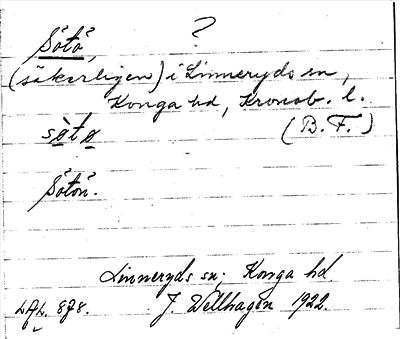 Sötö, ?
(säkerligen) i Linneryds sn,
Konga hd, Kronob. l.
(B. F.)
söto
Sötön.
Linneryds sn; Konga hd
LfL. 878. J. Wellhagen 1922.